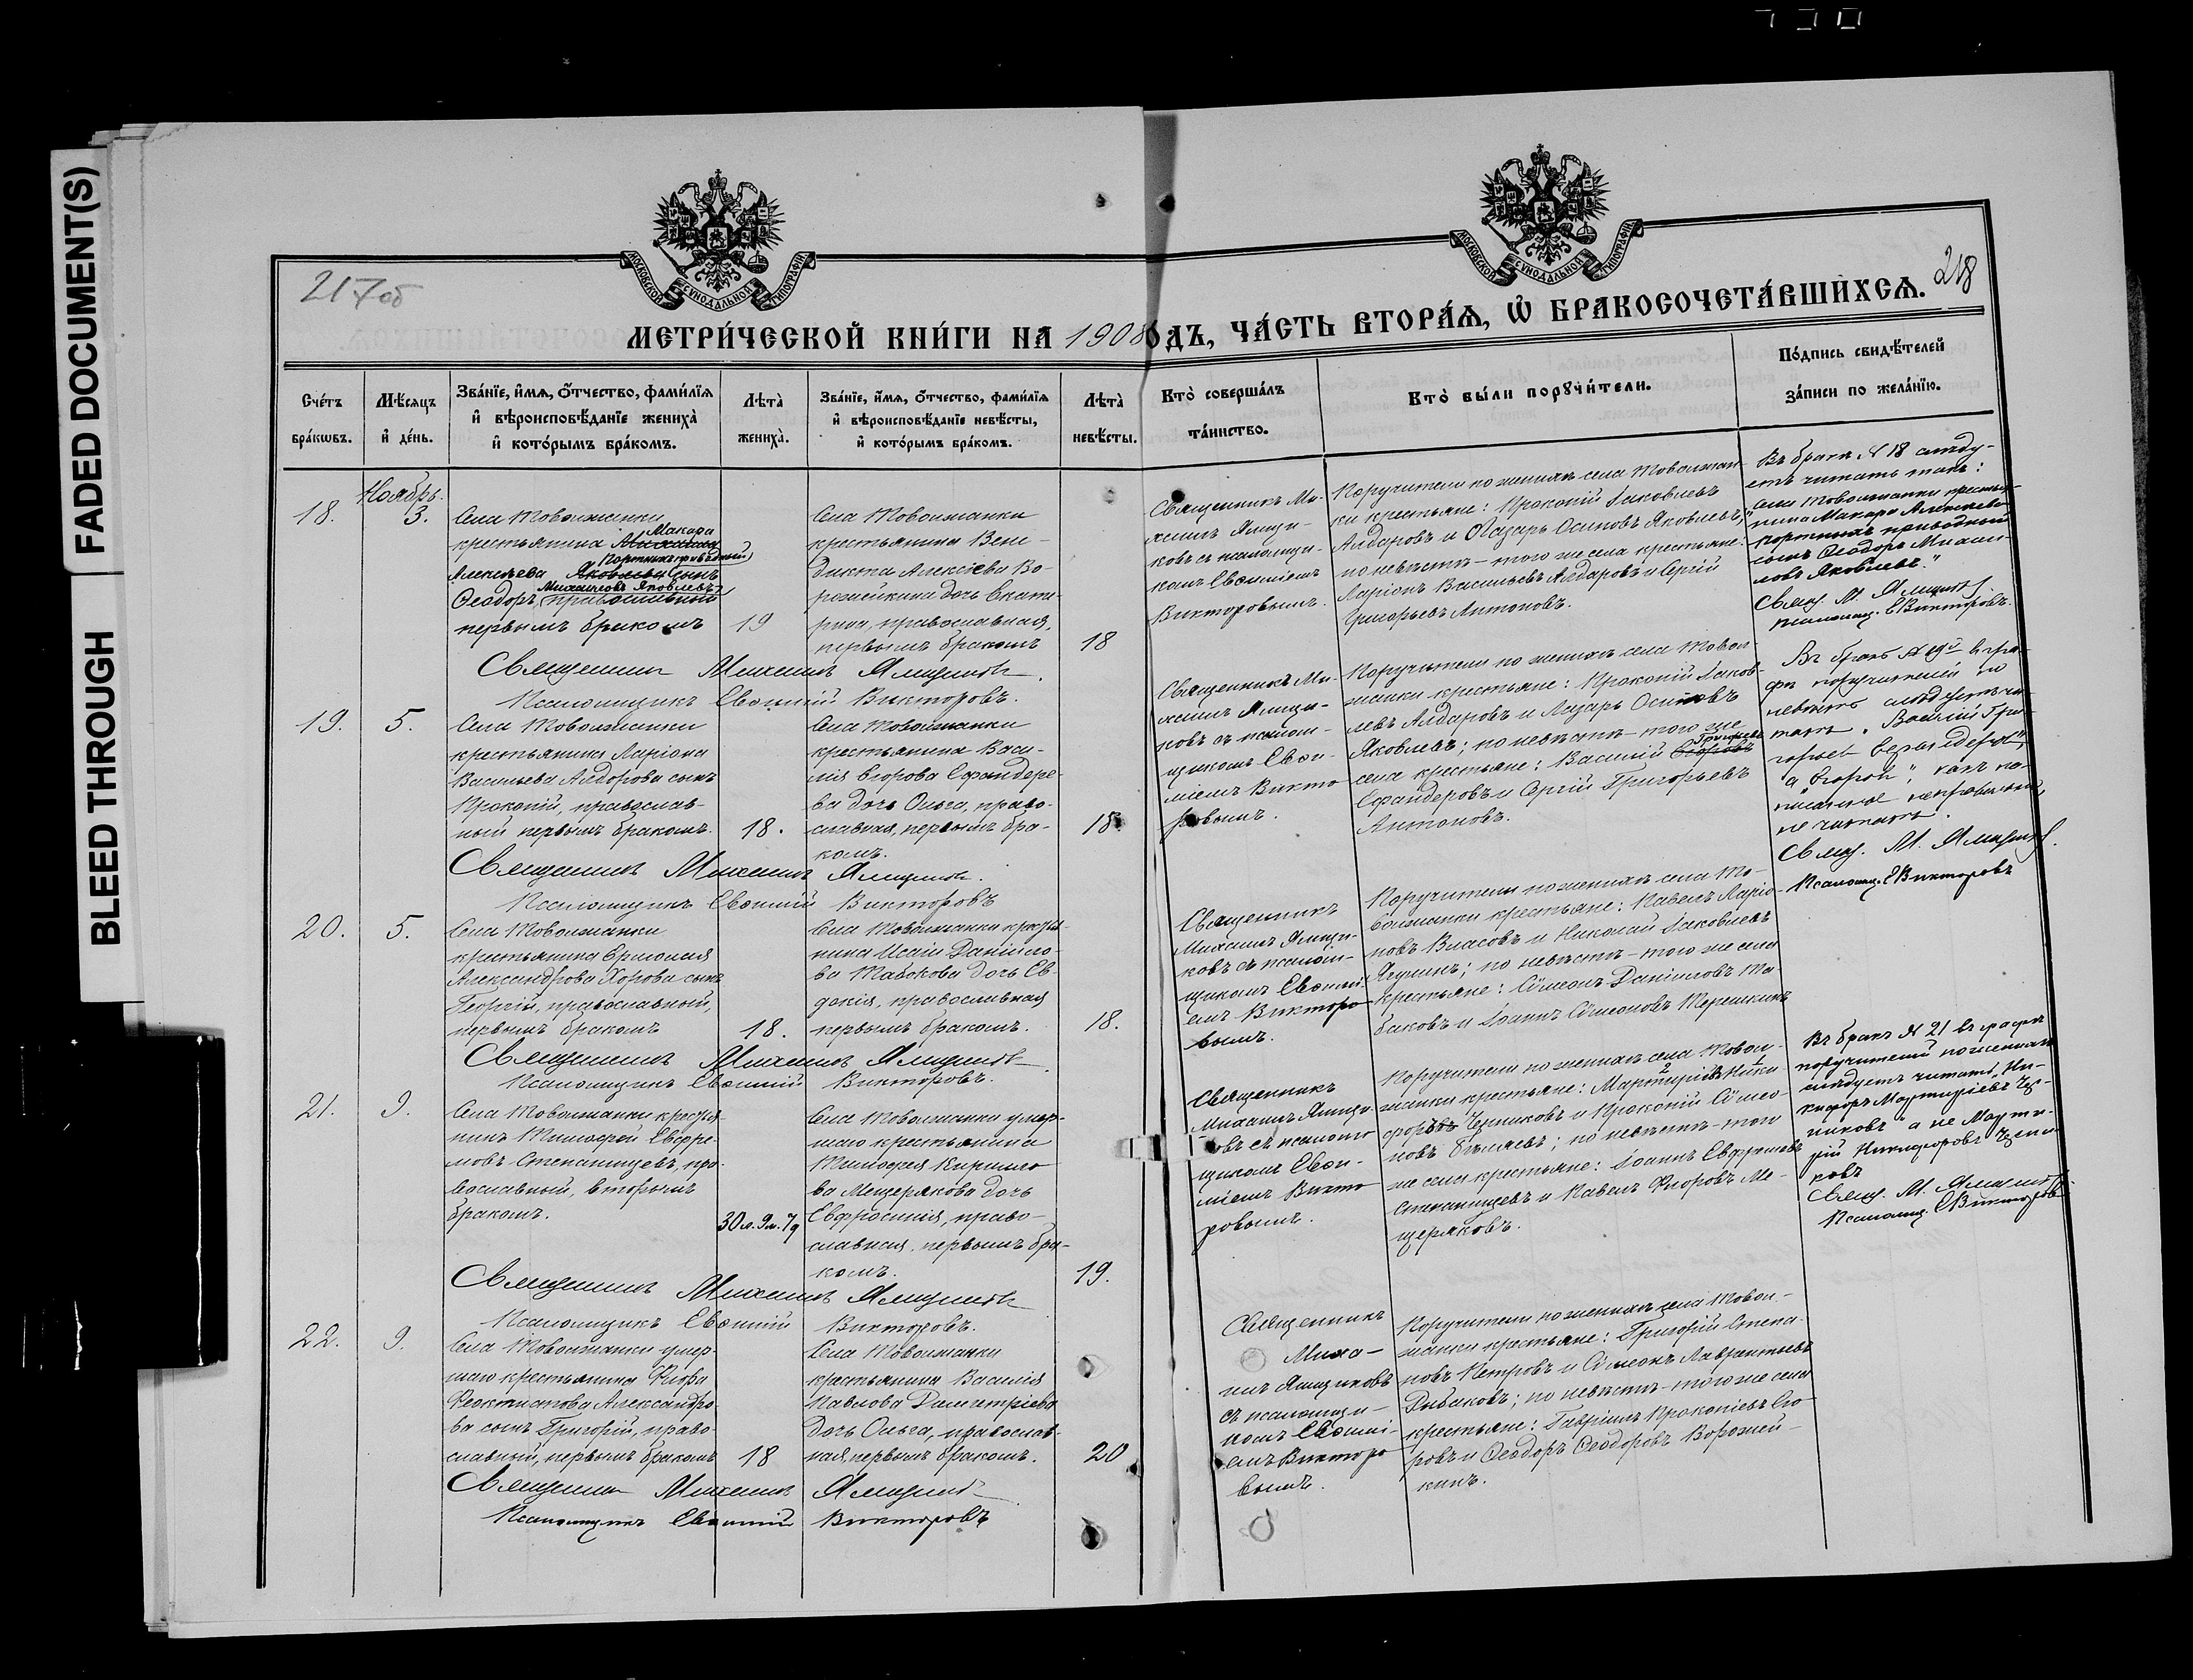 BLEED THROUGH FADED DOCUMENT(S)
217об
МОСКОВСКОЙ СѴНОДАЛЬНОЙ ТИПОГРАФІИ
МОСКОВСКОЙ СѴНОДАЛЬНОЙ ТИПОГРАФІИ
218
МЕТРИ́ЧЕСКОЙ КНИ́ГИ НА 1908 ОДЪ, ЧА́СТЬ ВТОРА́Ѧ, Ѡ҆ БРАКОСОЧЕТА́ВШИХСѦ.
Сче́тъ бра́кѡвъ.
Мѣ́сяцъ и҆ де́нь.
Зва́нїе, и҆́мѧ, ѻ҆́тчество, фами́лїѧ
и҆ вѣроисповѣ́данїе жениха̀
и҆ кото́рымъ бра́комъ.
Лѣта̀ жениха̀.
Зва́нїе, и҆́мѧ, ѻ҆́тчество, фами́лїѧ
и҆ вѣроисповѣ́данїе невѣ́сты,
и҆ кото́рымъ бра́комъ.
Лѣта̀ невѣ́сты.
Кто̀ соверша́лъ та́инство.
Кто̀ бы́ли порꙋчи́тели.
По́дпись свидѣ́телей
за́писи по жела́нїю.
18.
Ноябрь
3.
Села Товолжанки
Макара
крестьянина Михаила
Портныхъ приводный
Алексѣева Яковлева сынъ
Михаиловъ Яковлевъ
Ѳеодоръ, православный
первымъ бракомъ
19
Села Товолжанки
крестьянина Вене-
дикта Алексіева Во-
рожейкина дочь Екате-
рина, православная,
первымъ бракомъ
18
Священникъ Ми-
хаилъ Ямщи-
ковъ съ псаломщи-
комъ Евѳиміемъ
Викторовымъ.
Поручители по женихѣ села Товолжан-
ки крестьяне: Прокопій Іаковлевъ
Алдаровъ и Лазарь Осиповъ Яковлевъ;
по невѣстѣ - того же села крестьяне:
Ларіонъ Васильевъ Алдаровъ и Сергій
Григорьевъ Антоновъ.
Въ бракѣ № 18 слѣду-
етъ читать такъ:
„Села Товолжанки крестья-
нина Макара Алексѣева
Портныхъ приводный
сынъ Ѳеодоръ Михаи-
ловъ Яковлевъ."
Свящ. М. Ямщиковъ
Псаломщ. Е Викторовъ.
Священникъ Михаилъ Ямщиковъ.
Псаломщикъ Евѳимій Викторовъ.
19.
5.
Села Товолжанки
крестьянина Ларіона
Васильева Алдорова сынъ
Прокопій, православ-
ный первымъ бракомъ.
18.
Села Товолжанки
крестьянина Васи-
лія Егорова Ефандере-
ва дочь Ольга, право-
славная, первымъ бра-
комъ.
18.
Священникъ Ми-
хаилъ Ямщи-
ковъ съ псалом-
щикомъ Евѳи-
міемъ Викто-
ровымъ.
Поручители по женихѣ села Товол-
жанки крестьяне: Прокопій Іаков-
левъ Алдаровъ и Лазарь Осиповъ
Яковлевъ; по невѣстѣ - того же
Григорьев
села крестьяне: Василій Егоровъ
Ефандеровъ и Сергій Григорьевъ
Антоновъ.
Въ бракѣ № 19й въ гра-
фѣ поручителей по
невѣстѣ слѣдуетъ чи-
тать Василій Гри-
горьев
а „Егоровъ", какъ на-
писанное неправильно,
не читать.
Свящ. М. Ямщиковъ.
Псаломщ. Е Викторовъ
Священникъ Михаилъ Ямщиковъ.
Псаломщикъ Евѳимій Викторовъ
20.
5.
Села Товолжанки
крестьянина Ермолая
Александрова Хорова сынъ
Георгій, православный,
первымъ бракомъ
18.
Села Товолжанки крестья-
нина Исаіи Даніило-
ва Табокова дочь Ев-
докія, православная
первымъ бракомъ.
18.
Священникъ
Михаилъ Ямщи-
ковъ съ псалом-
щикомъ Евѳимі-
емъ Викторо-
вымъ.
Поручители по женихѣ села То-
волжанки крестьяне: Павелъ Ларіо-
новъ Власовъ и Николай Іаковлевъ
Ягунинъ; по невѣстѣ - того же села
крестьяне: Сѵмеонъ Даніиловъ Та-
баковъ и Іоаннъ Сѵмеоновъ Терешкинъ
Священникъ Михаилъ Ямщиковъ
Псаломщикъ Евѳимій Викторовъ.
21.
9.
Села Товолжанки крестья-
нинъ Тимоѳей Евфре-
мовъ Степанищевъ, пра-
вославный, вторымъ
бракомъ.
30 л. 9 м. 7 д
Села Товолжанки умер-
шаго крестьянина
Тимоѳея Кирилло-
ва Мещерякова дочь
Евфросинія, право-
славная, первымъ бра-
комъ.
19.
Священникъ
Михаилъ Ямщи-
ковъ съ псалом-
щикомъ Евѳи-
міемъ Викто-
ровымъ.
Поручители по женихѣ села Товол-
2 1
жанки крестьяне: Мартирій Ники-
форовъ Чепиковъ и Прокопій Сѵмео-
новъ Бѣляевъ; по невѣстѣ - того
же села крестьяне: Іоаннъ Евфремовъ
Степанищевъ и Павелъ Флоровъ Ме-
щеряковъ.
Въ бракѣ № 21 въ графѣ
поручителей по женихѣ
слѣдуетъ читать „Ни-
кифоръ Мартиріевъ Чеп-
иковъ" а не Марти-
рій Никифоровъ Чепи-
ковъ
Свящ. М. Ямщиковъ
Псаломщ. Е Викторовъ
Священникъ Михаилъ Ямщиковъ
Псаломщикъ Евѳимій Викторовъ.
22.
9.
Села Товолжанки умер-
шаго крестьянина Флора
Феоктистова Александро-
ва сынъ Григорій, право-
славный, первымъ бракомъ
18
Села Товолжанки
крестьянина Василія
Павлова Димитріева
дочь Ольга, православ-
ная, первымъ бракомъ.
20
Священникъ
Миха-
илъ Ямщиковъ
съ псаломщи-
комъ Евѳимі-
емъ Викторо-
вымъ.
Поручители по женихѣ села Товол-
жанки крестьяне: Григорій Степа-
новъ Петровъ и Сѵмеонъ Лаврентьевъ
Рыбаковъ; по невѣстѣ - того же села
крестьяне: Гавріилъ Прокопіевъ Его-
ровъ и Ѳеодоръ Ѳеодоровъ Ворожей-
кинъ.
Священникъ Михаилъ Ямщиковъ
Псаломщикъ Евѳимій Викторовъ